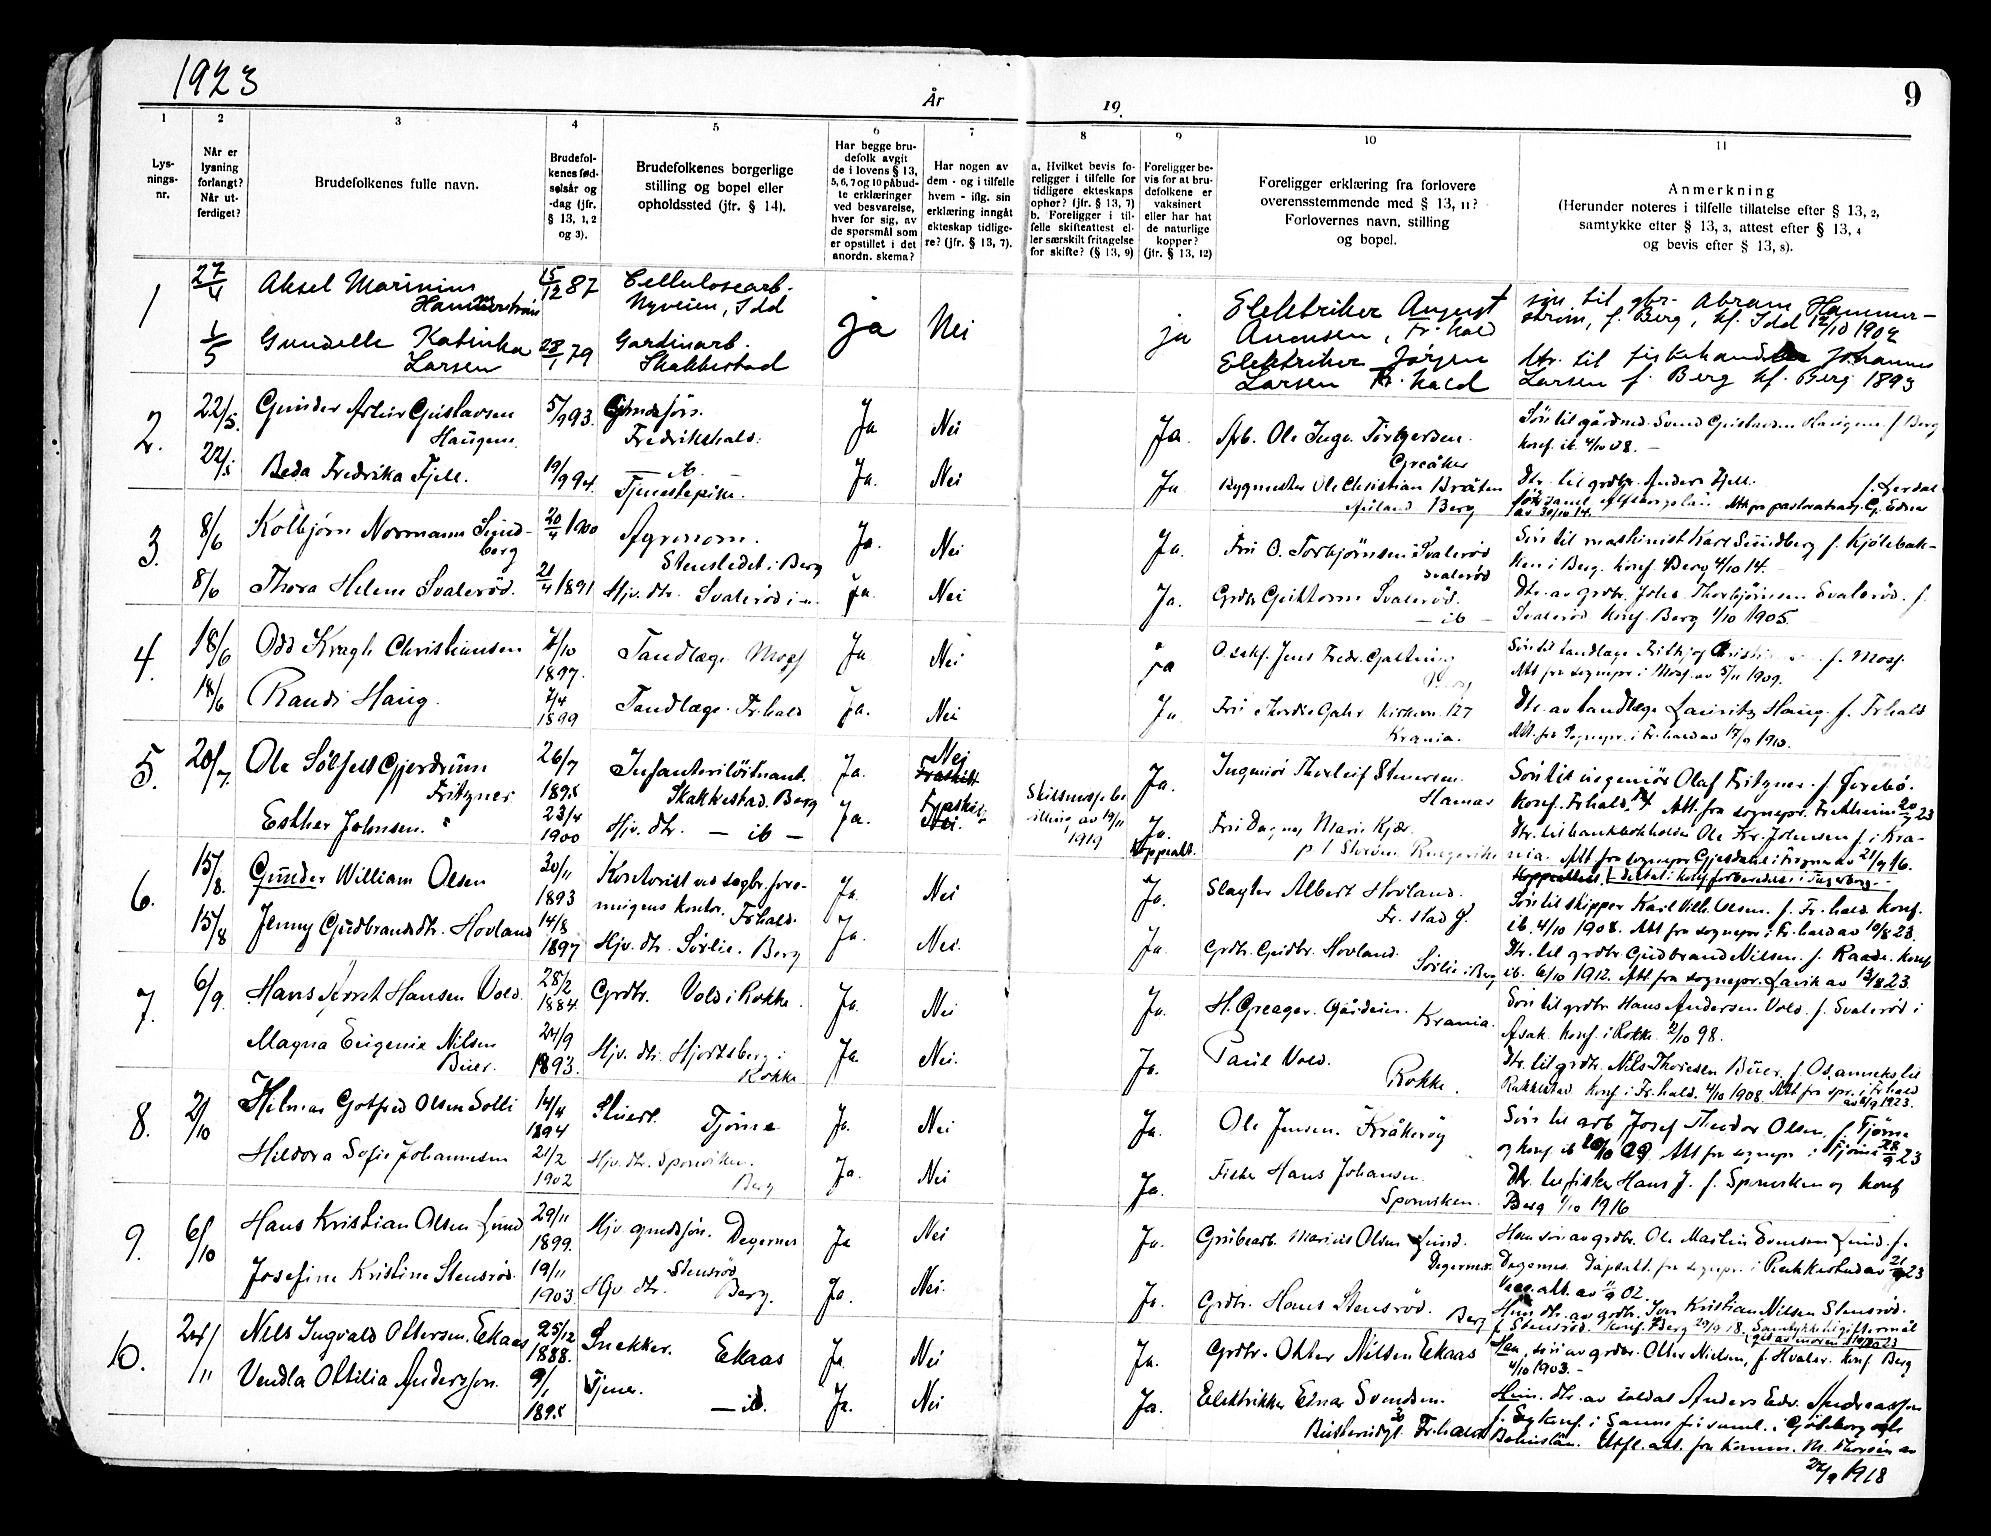 1923
År
19
9
1
2
3
4
5
6
7
8
9
10
11
Lysnings-nr.
Når er lysning forlangt? Når utferdiget?
Brudefolkenes fulle navn.
Brudefolkenes fødselsår og -dag (jfr. § 13, 1, 2 og 3).
Brudefolkenes borgerlige stilling og bopel eller opholdssted (jfr. § 14).
Har begge brudefolk avgit de i lovens § 13, 5, 6, 7 og 10 påbudte erklæringer ved besvarelse, hver for sig, av de spørsmål som er opstillet i det anordn. skema?
Har nogen av dem - og i tilfelle hvem - iflg. sin erklæring inngått ekteskap tidligere? (jfr. § 13, 7).
a. Hvilket bevis foreligger i tilfelle for tidligere ekteskaps ophør? (jfr. § 13, 7) b. Foreligger i tilfelle skifteattest eller særskilt fritagelse for skifte? (§ 13, 9)
Foreligger bevis for at brudefolkene er vaksinert eller har hat de naturlige kopper? (jfr. § 13, 12)
Foreligger erklæring fra forlovere overensstemmende med § 13, 11? Forlovernes navn, stilling og bopel.
Anmerkning (Herunder noteres i tilfelle tillatelse efter § 13, 2, samtykke efter § 13, 3, attest efter § 13, 4 og bevis efter § 13, 8).
1
27/4
Aksel Marinius Hammerstrøm
15/12 87
Cellulosearb. Nyveien, Idd
ja
Nei
ja
Elektriker August Amonsen, Fr.hald
søn til gbr. Abram Hammerstrøm, f. Berg, kf. Idd 12/10 1902
1/5
Gunelle Katinka Larsen
28/1 79
Gardinarb. Skakkestad
Elektriker Jørgen Larsen Fr.hald
dtr. til fiskehandler Johannes Larsen f. Berg kf. Berg 1893
2.
22/5.
Gunder Artur Gustavsen Haugen
5/9 93.
Fredrikshald.
Ja
Nei
Ja.
Arb. Ole Inge Torgersen. Greåker
Søn til gårdmd. Svend Gustavsen Haugen f. Berg konf. ib. 4/10 08. –
22/5
Beda Fredrika Fjell.
19/9 94.
– ib – Tjenestepike.
Ja.
Nei
Ja
Bygmester Ole Christian Bråten Berg
Dtr. til grdbr. Anders Fjell.
3.
8/6
Kolbjørn Normann Sundberg
20/4 1900
Agronom. Stensledet i Berg
Ja.
Nei
Ja.
Fru O. Torbjørnsen Svalerød
Søn til maskinist Karl Sundberg f. Kjølebakken i Berg. Konf. Berg 4/10 14.
8/6
Thora Helene Svalerød.
21/4 1891
Hjv. dtr. Svalerød i –"–
Ja.
Nei
Ja.
Grdbr. Guttorm Svalerød. – ib –
Dtr. av grdbr. Johs. Thorbjørnsen Svalerød. f. Svalerød Konf. Berg 1/10 1905.
4.
18/6
Odd Kragh Christiansen
7/10 1897.
Tandlæge Moss
Ja
Nei
Ja
O.sakf. Jens Fredr. Galtung
Søn til tandlæge Fritjof Christiansen f. Moss. Att. fra sognepr. i Moss av 5/11 1909.
18/6
Randi Haug.
7/4 1899
Tandlæge. Fr.hald
Ja.
Nei
Ja
Fru Thordis Gahr Kirkevn. 127 Krania.
Dtr. av tandlæge Lauritz Haug. f. Fr.hald Att. fra Sognepr. i Fr.hald av 17/9 1913.
5.
20/7.
Ole Sølfest Gjerdrum Fritzner
26/7 1895
Infanteriløitnant. Skakkestad. Berg
Ja.
Nei Fraskilt
Ja.
Ingeniør Thorleif Stenersen. Hamar
Søn til ingeniør Olaf Fritzner. f. Ørebo. Konf. Fr.hald. Att. fra sognepr. Fr.hald
Esther Johnsen.
23/4 1900
Hjv. dtr. – ib –
Ja.
Fraskilt Nei.
Skilsmissebevilling av 19/11 1919
Ja. Koppeatt.
Fru Dagny Marie Kjær. Ringerike
Dtr. til bankbokholder Ole Kr. Johnsen f. i Krania.
6.
15/8.
Gunder William Olsen
30/11 1893
Kontorist ved sagbr.foreningens kontor. Fr.hald.
Ja.
Nei
Ja.
Slagter Albert Hovland. Fr.stad
Søn til skipper Karl Vilh. Olsen. f. Fr.hald. Konf. ib. 4/10 1908. Att. fra sognepr. i Fr.hald av 10/8 23.
15/8
Jenny Gudbrandsdtr. Hovland
14/8 1897
Hjv. dtr. Sørlie. Berg
Ja.
Nei.
Ja
Grdbr. Gudbr. Hovland. Sørlie i Berg
Dtr. til grdbr. Gudbrand Nilsen. f. Raade. Konf. ib. 6/10 1912. Att. fra sognepr. Larvik av 13/8 23.
7.
6/9
Hans Hansen Vold.
28/2 1884.
Grdbr. Vold i Rokke.
Ja.
Nei
Ja.
H. Greager. Gårdeier. Krania.
Søn til grdbr. Hans Andersen Vold. f. Svalerød i Asak. Konf. i Rokke. 2/10 98.
Magna Eugenie Nilsen Buer.
24/9 1893.
Hjv. dtr. Hjortsberg i Rokke
Ja
Nei.
Ja.
Paul Vold. Rokke.
Dtr. til grdbr. Nils Thoresen Buer. f. Os, anneks til Rakkestad Konf. i Fr.hald. 4/10 1908. Att. fra spr. i Fr.hald
8.
2/10
Hilmar Gotfred Olsen Solli
14/4 1894
Stuert. Tjøme
Ja.
Nei
Ja.
Ole Jensen. Kråkerøy
Søn til arb. Josef Theodor Olsen, f. Tjøme og konf. ib Att. fra sognepr. i Tjøme 28/9 23
Hildora Sofie Johannesen
21/2 1902
Hjv. dtr. Sponviken. Berg
Ja.
Nei
Ja.
Fisker Hans Johansen. Sponviken.
Dtr. til fisker Hans J. f. Sponviken og konf. Berg 1/10 1916
9.
6/10
Hans Kristian Olsen Lund
29/11 1899.
Hjv. grdmdssøn. Degernes
Ja
Nei
Ja.
Grubearb. Marius Olsen Lund. Degernes.
Han søn av grdbr. Ole Martin Svensen Lund. f. Degernes. Dåpsatt. fra sognepr. i Rakkestad av 21/9 23 Vacc.att. av 11/9 02.
Josefine Kristine Stensrød.
19/11 1903.
Hjv. dtr. Stensrød Berg.
Ja.
Nei.
Ja.
Grdbr. Hans Stensrød. Berg
Hun dtr. av grdbr. Iver Kristian Nilsen Stensrød. f. Stensrød. Konf. Berg 29/9 18. Samtykke til giftermål
10.
24/11
Nils Ingvald Ottersen. Eekaas
25/12 1888.
Snekker. Eekaas
Ja.
Nei
Ja.
Grdbr. Otter Nilsen Eekaas
Han, søn av grdbr. Otter Nielsen, f. Hvaler. Konf. Berg 4/10 1903. –
Vendla Ottilia Andersson.
9/1 1895
Tjener. – ib.
Ja.
Nei
Ja.
Elektrikker Einar Svendsen. Fr.hald
Hun. dtr. av soldat Anders Edv. Andreasson
Bohuslän. Utfl. att. fra komm.
24/9 1918